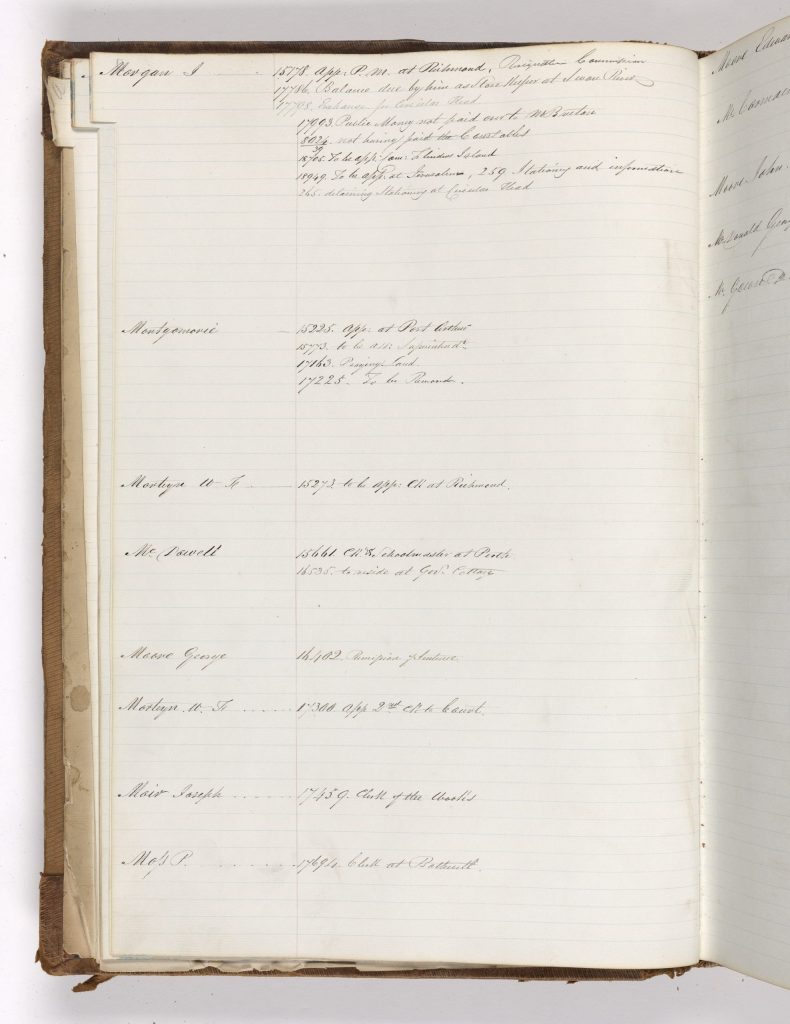 Morgan J 15178. app: P. M. at Richmond, Resignation Commission
17786. Balance due by him as Store Keeper at Swan River
17798. Exchange for Circular Head
17903. Public Money not paid over to
8024. not having paid the Constables
39
18705. To be app: Flinders Island
18949. To be app at Jerusalem, 259 Stationery and information
265. detaining Stationery at Circular Head
Montgomerie 15225. app: at Port Arthur
15773. to be ass: Superintendt
17163. Land
17225. To be
Morteyn W. F. 15273. to be app: Clk at Richmond.
Mc Dowell 15661. Clk & Schoolmaster at Perth
16535. to reside at Govt. Cottage
Moore George 16402. Remission of Sentence
Morteyn W. F. 17300. app 2nd Clk to Court.
Moir Joseph 17459. Clerk of the Works
Moss P. 17694. Clerk at Bothwell.
Moore Edwa
Moore John
Mc Donald Geor